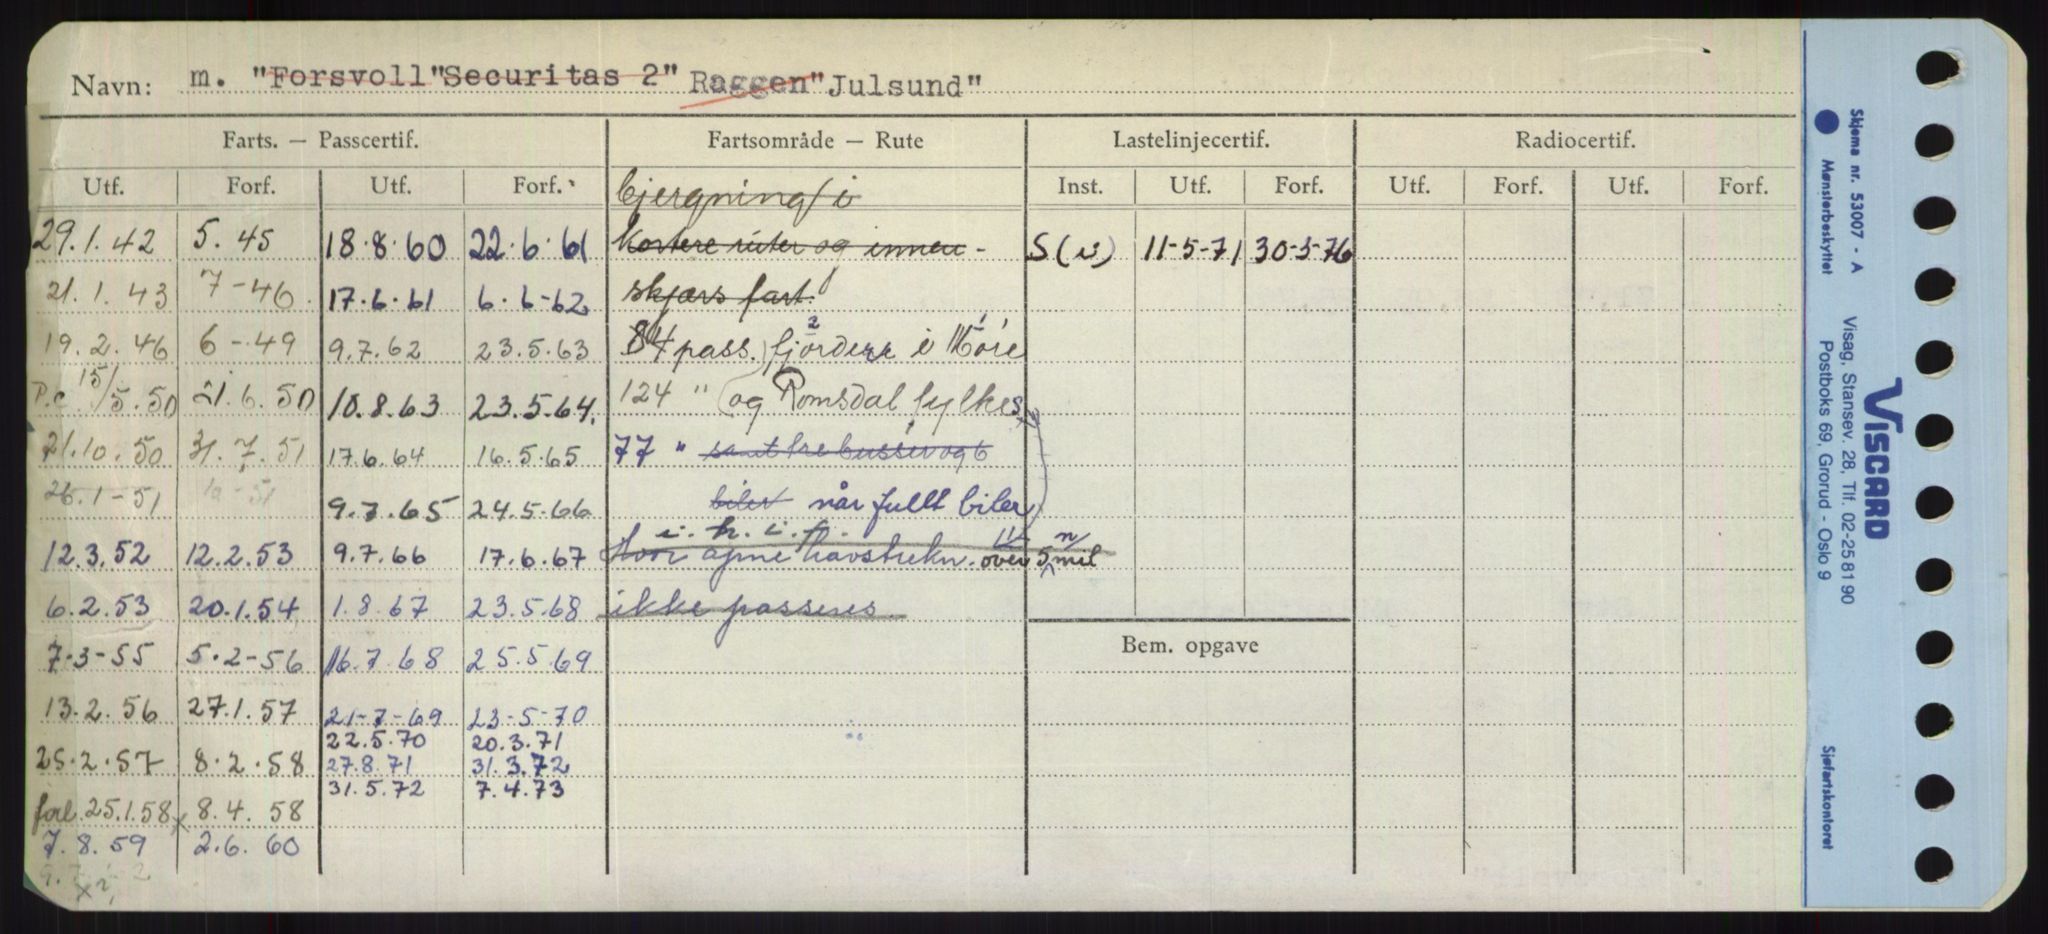 Navn: m. "Forsvoll" "Securitas 2" Raggen" Julsund"
Farts. — Passcertif. Fartsområde — Rute Lastelinjecertif. Radiocertif.
Utf. Forf. Utf. Forf. bjergning i Inst. Utf. Forf. Utf. Forf. Utf. Forf.
29.1.42 5.45 18.8.60 22.6.61 kortere ruter og innen- S(v) 11-5-71 30-5-76
21.1.43 7-46 17.6.61 6.6-62 skjærs fart.
19.2.46 6-49 9.7.62 23.5.63 84 pass. fjordene i Møre
P.c 15/5.50 21.6.50 10.8.63 23.5.64. 124 " og Romsdal fylkes
21.10.50 31.7.51 17.6.64 16.5.65 77 " samt tre busser og 6
26.1-51 9.7.65 24.5.66 biler når fullt biler
i. h. i. f.
12.3.52 12.2.53 9.7.66 17.6.67 Hvor åpne havstrekn. over 5 n mil
6.2.53 20.1.54 1.8.67 23.5.68 ikke passeres
7-3-55 5.2-56 16.7.68 25.5.69 Bem. opgave
13.2.56 27.1.57 21-7-69 23-5-70
22.5.70 20.3.71
25.2.57 8.2.58 27.8.71 31.3.72
31.5.72 7.4.73
forl. 25.1.58 x 8.4.58
7.8.59 2.6.60
Skjema nr. 53007 - A
Mønsterbeskyttet
VISCARD
Visag, Stansev. 28, Tlf. 02-258190
Postboks 69, Grorud - Oslo 9
Sjøfartskontoret